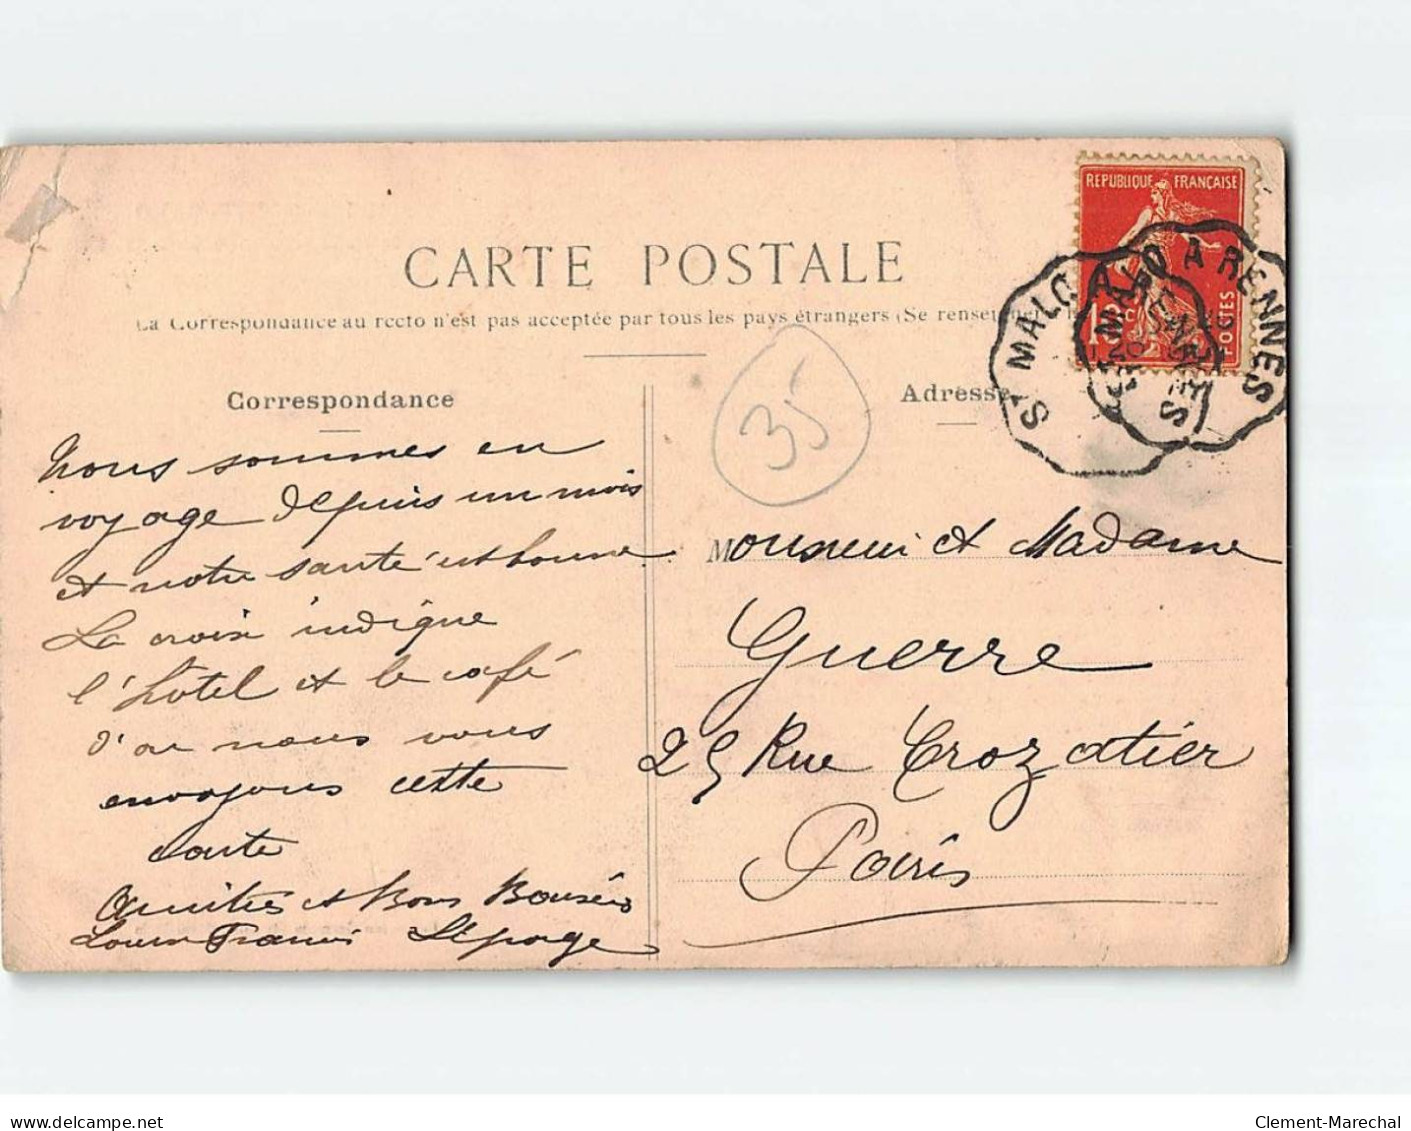 REPUBLIQUE FRANÇAISE
POSTES
ST MALO A RENNES
ST MALO A RENNES
CARTE POSTALE
La Correspondance au recto n'est pas acceptée par tous les pays étrangers (Se renseigner
Correspondance
35
Adresse
Nous sommes en
voyage depuis un mois
et notre santé est bonne
La croix indique
l'hotel et le café
d'ou nous vous
envoyons cette
carte
Amitiés et Bons Baisers
Louis Francis Lepage
Monsieur et Madame
Guerre
25 Rue Crozatier
Paris
www.delcampe.net
Clement-Marechal